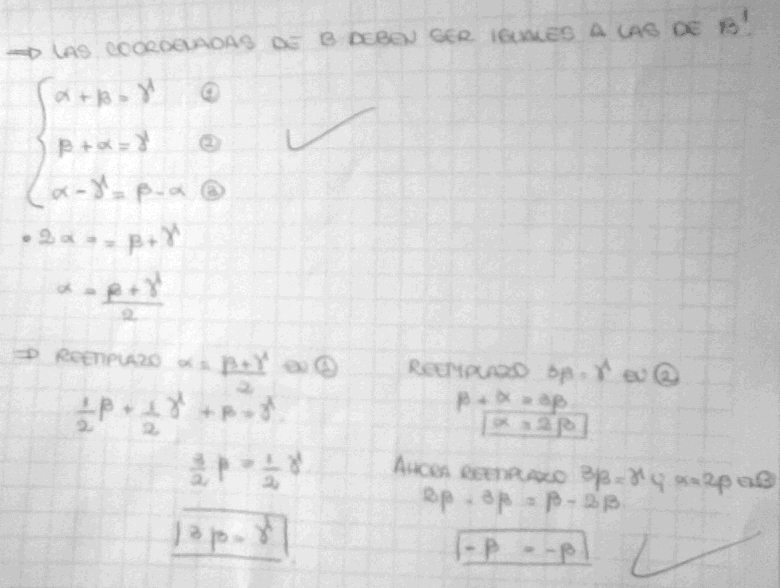 ⇒ LAS COORDENADAS DE B DEBEN SER IGUALES A LAS DE B'.
α + β = γ ①
β + α = γ ②
α - γ = β - α ③
• 2α = = β + γ
α = β + γ / 2
⇒ REEMPLAZO α = β + γ / 2 EN ①
1/2 β + 1/2 γ + β = γ.
3/2 β = 1/2 γ
3β = γ
REEMPLAZO 3β = γ EN ②
β + α = 3β
α = 2β
AHORA REEMPLAZO 3β = γ y α = 2β EN ③
2β - 3β = β - 2β
-β = -β